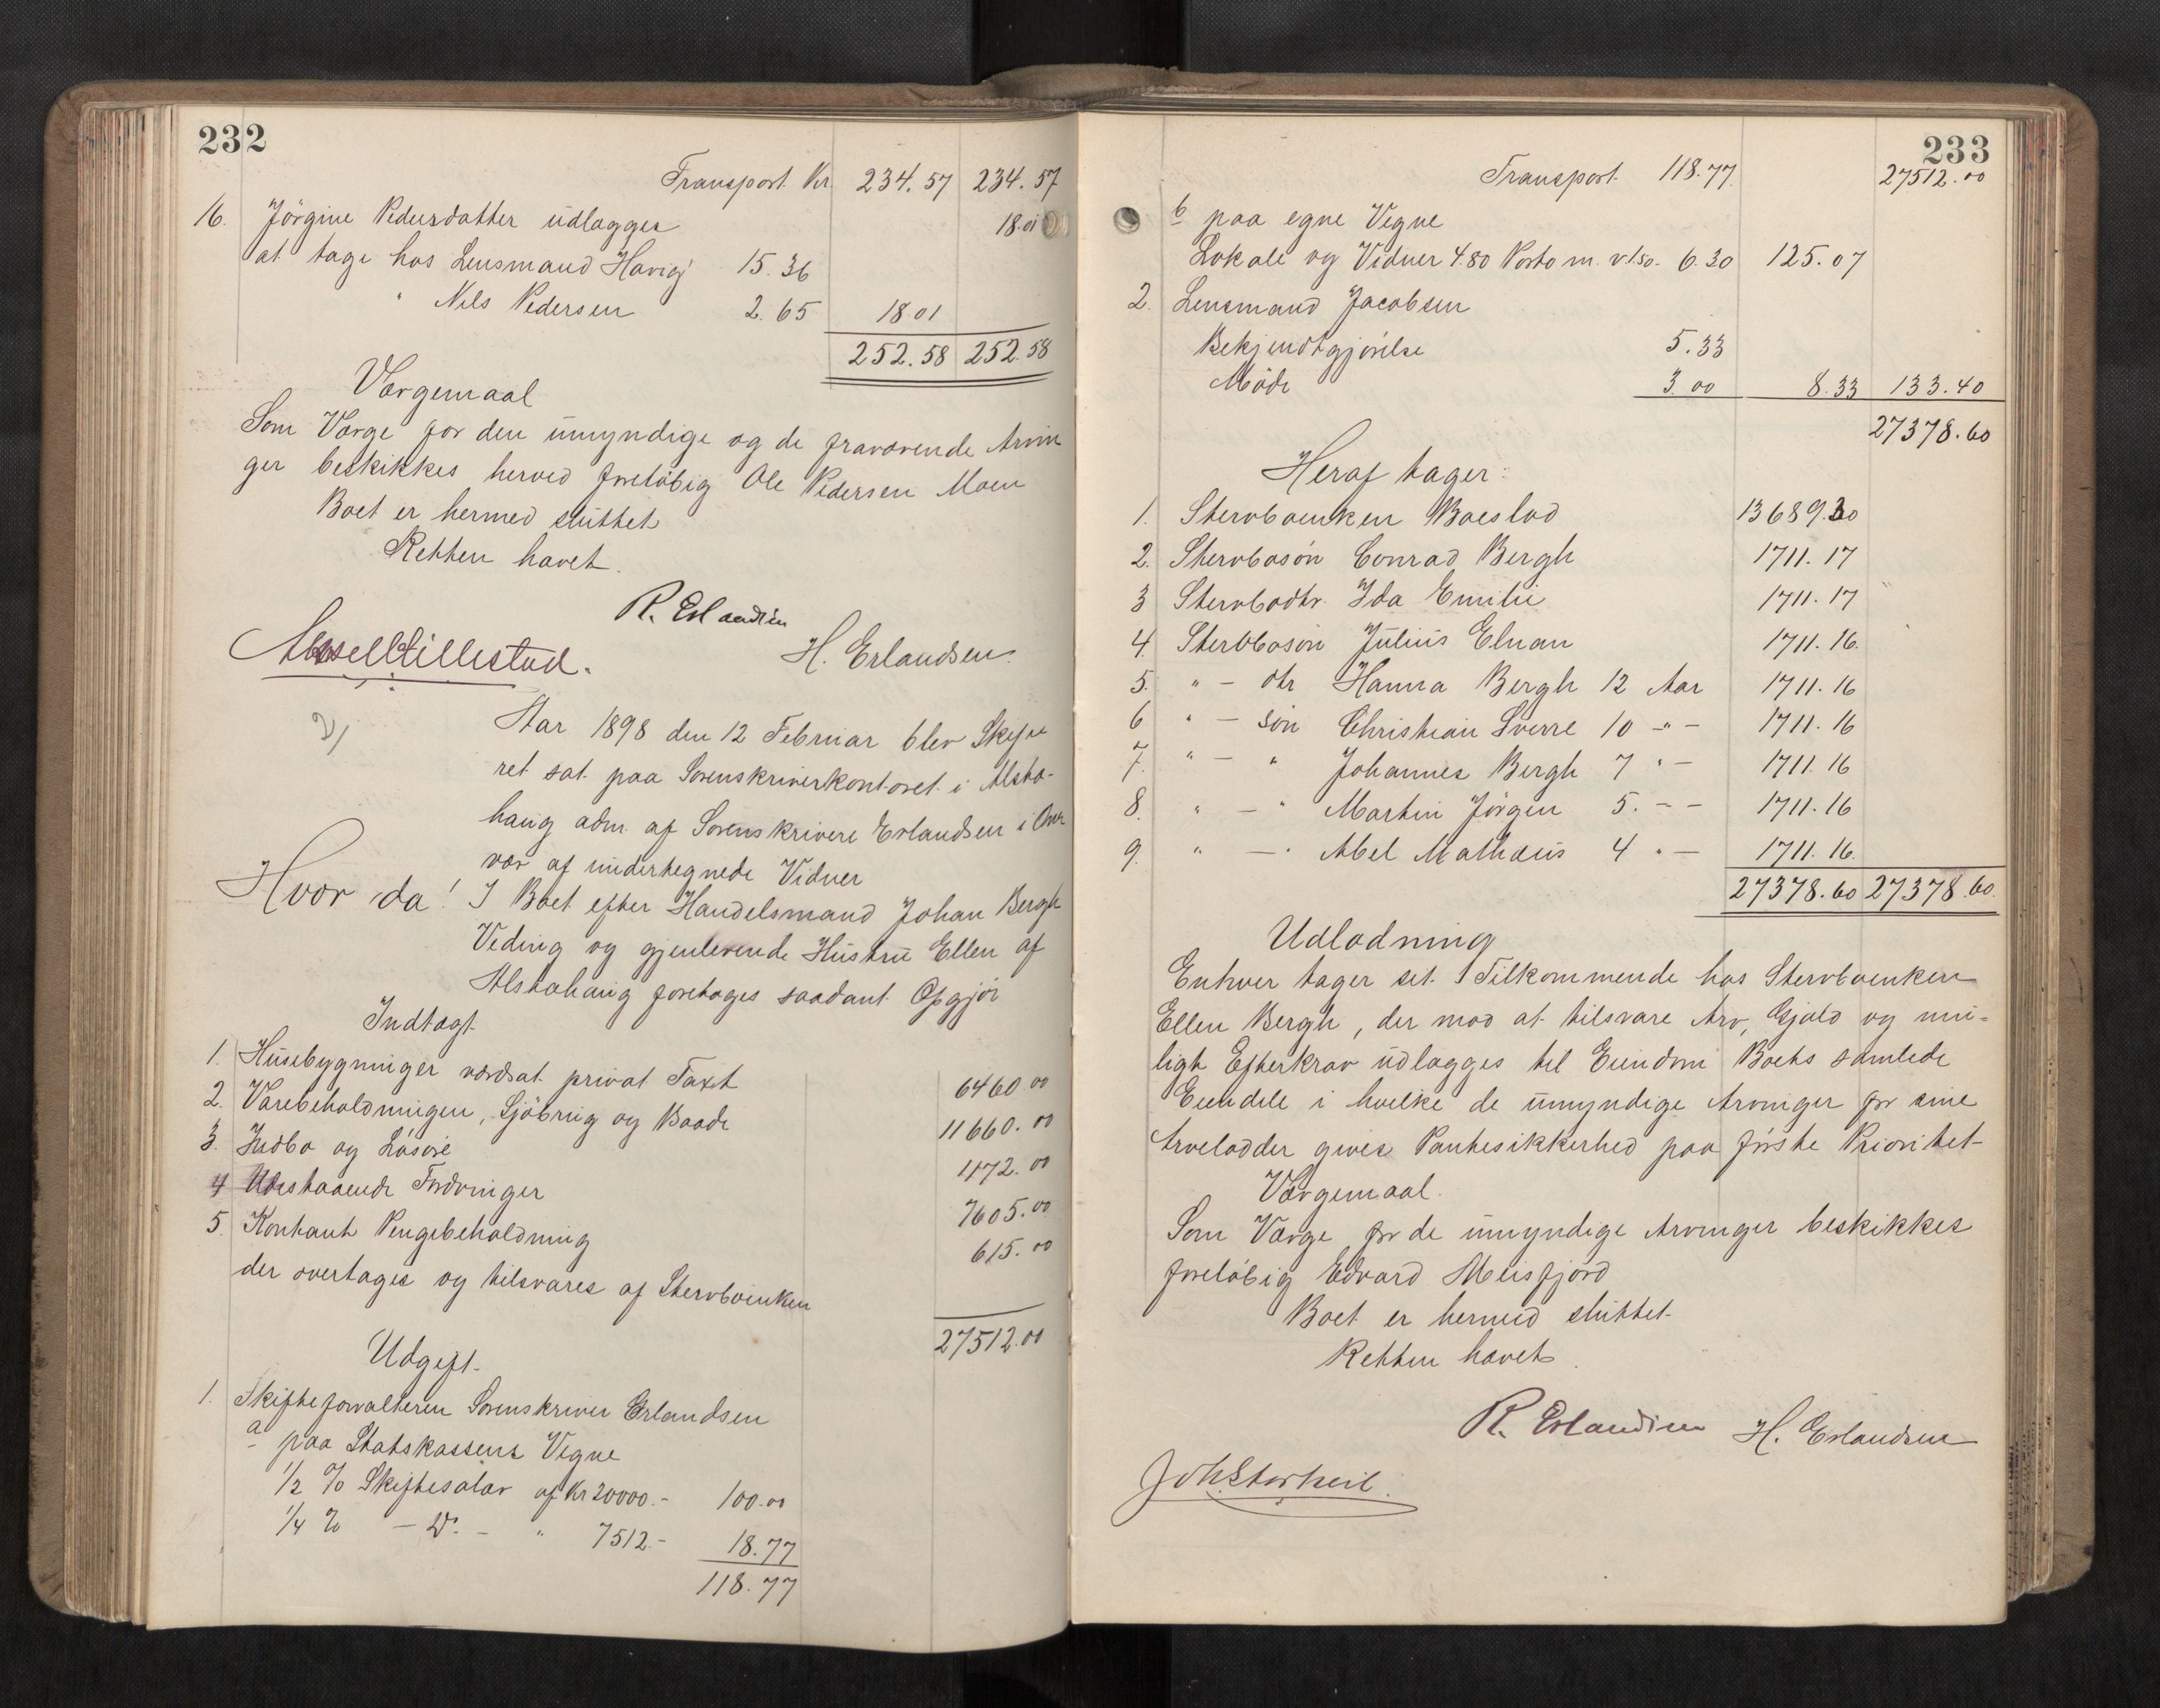 232
Transport Kr. 234.57 234.57
16. Jörgine Pedersdatter udlægges 18.01
at tage hos Lensmand Havig 15.36
" Nils Pedersen 2.65 18.01
252.58 252.58
Værgemaal
Som Værge for den umyndige og de fraværende Arvin
ger beskikkes herved foreløbig Ole Pedersen Moen
Boet er hermed sluttet
Retten hævet.
R. Erlandsen
H. Erlandsen.
Aar 1898 den 12 Februar blev Skifte
ret sat paa Sorenskriverkontoret i Alsta-
haug adm. af Sorenskriver Erlandsen i Over
vær af undertegnede Vidner
Hvor da! I Boet efter Handelsmand Johan Bergh
Veding og gjenlevende Hustru Ellen af
Alstahaug foretages saadant Opgjør
Indtægt
1. Husebygninger værdsat privat Taxt 6460.00
2. Varebeholdningen, Sjöbrug og Baade 11660.00
3. Indbo og Løsøre 1172.00
4 Udestaaende Fordringer 7605.00
5. Kontant Pengebeholdning 615.00
der overtages og tilsvares af Stervboenken
27512.00
Udgift
1. Skifteforvalteren Sorenskriver Erlandsen
a paa Statskassens Vegne
1/2 % Skiftesalær af Kr 20000.- 100.00
1/4 % - Do. - " 7512.- 18.77
118.77
233
Transport 118.77 27512.00
b paa egne Vegne
Lokale og Vidner 4.80 Porto m. v 1.50. 6.30 125.07
2. Lensmand Jacobsen
Bekjendtgjørelse 5.33
Møde 3.00 8.33 133.40
27378.60
Heraf tager:
1. Stervboenken Boeslod 13689.30
2. Stervbosøn Conrad Bergh 1711.17
3 Stervbodtr. Ida Emilie 1711.17
4. Stervbosøn Julius Elnan 1711.16.
5. " - dtr Hanna Bergh 12 Aar 1711.16
6 " - søn Christian Sverre 10 -"- 1711.16
7. " - " Johannes Bergh 7 "- 1711.16
8. " - " Martin Jörgen 5. -- 1711.16
9. " - " Abel Mathæus 4 "- 1711.16.
27378.60 27378.60
Udlodning
Enhver tager set Tilkommende hos Stervboenken
Ellen Bergh, der mod at tilsvare Arv, Gjæld og mu-
ligt Efterkrav udlægges til Eiendom Boets samlede
Eiendele i hvilke de umyndige Arvinger for sine
Arvelodder gives Pantesikkerhed paa første Prioritet
Værgemaal.
Som Værge for de umyndige Arvinger beskikkes
foreløbig Edvard Meisfjord
Boet er hermed sluttet
Retten hævet.
R. Erlandsen H. Erlandsen